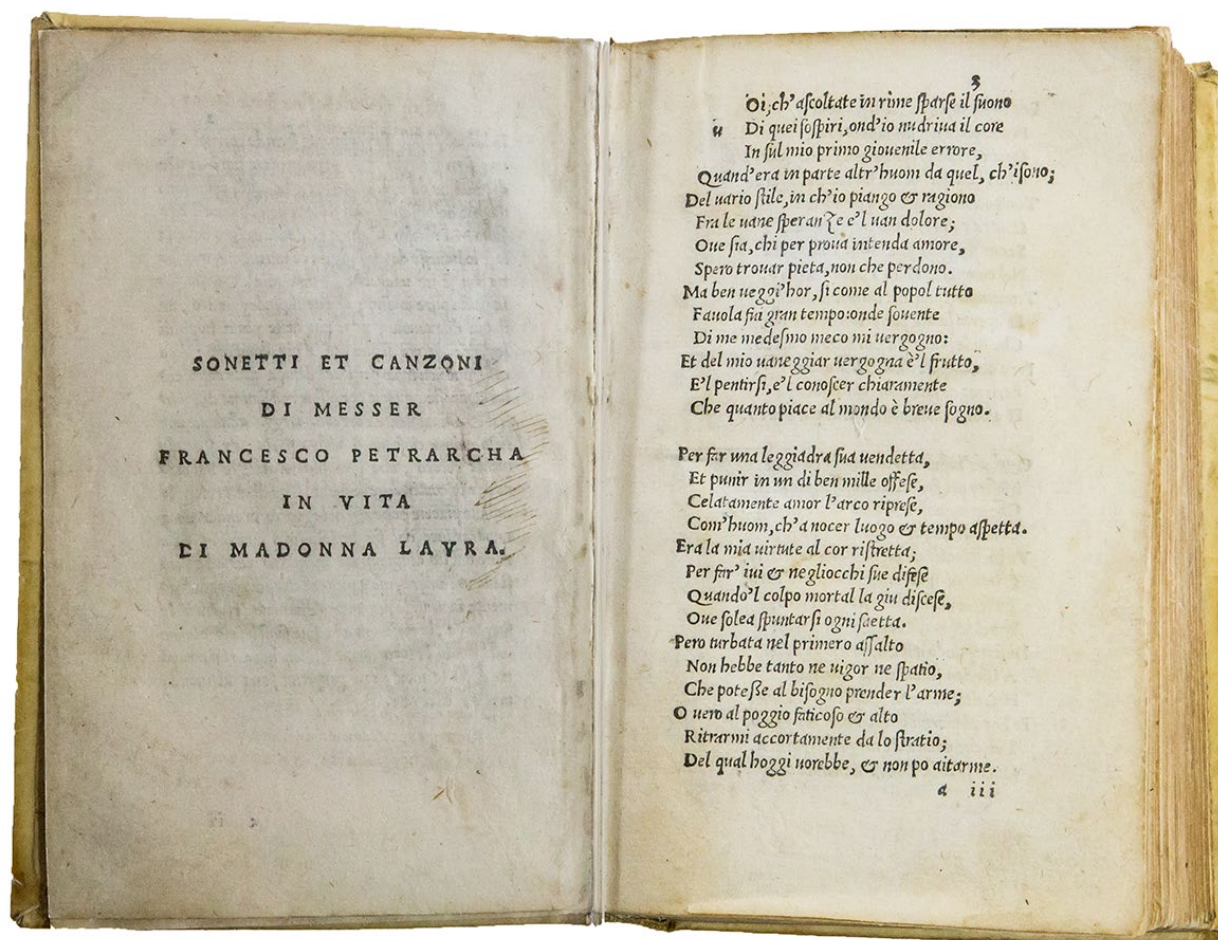 SONETTI ET CANZONI
DI MESSER
FRANCESCO PETRARCHA
IN VITA
DI MADONNA LAVRA.
3
Oi, ch'ascoltate in rime sparse il suono
u Di quei sospiri, ond'io nudriua il core
In sul mio primo giouenile errore,
Quand'era in parte altr'huom da quel, ch'i sono;
Del uario stile, in ch'io piango & ragiono
Fra le uane speranze e'l uan dolore;
Oue sia, chi per proua intenda amore,
Spero trouar pieta, non che perdono.
Ma ben ueggi'hor, si come al popol tutto
Fauola fui gran tempo: onde souente
Di me medesmo meco mi uergogno:
Et del mio uaneggiar uergogna è'l frutto,
E'l pentirsi, e'l conoscer chiaramente
Che quanto piace al mondo è breue sogno.
Per far una leggiadra sua uendetta,
Et punir in un di ben mille offese,
Celatamente amor l'arco riprese,
Com'huom, ch'a nocer luogo & tempo aspetta.
Era la mia uirtute al cor ristretta;
Per far' iui & negliocchi sue difese
Quando'l colpo mortal la giu discese,
Oue solea spuntarsi ogni saetta.
Pero turbata nel primero assalto
Non hebbe tanto ne uigor ne spatio,
Che potesse al bisogno prender l'arme;
O uero al poggio faticoso & alto
Ritrarmi accortamente da lo stratio;
Del qual hoggi uorebbe, & non po aitarme.
a iii